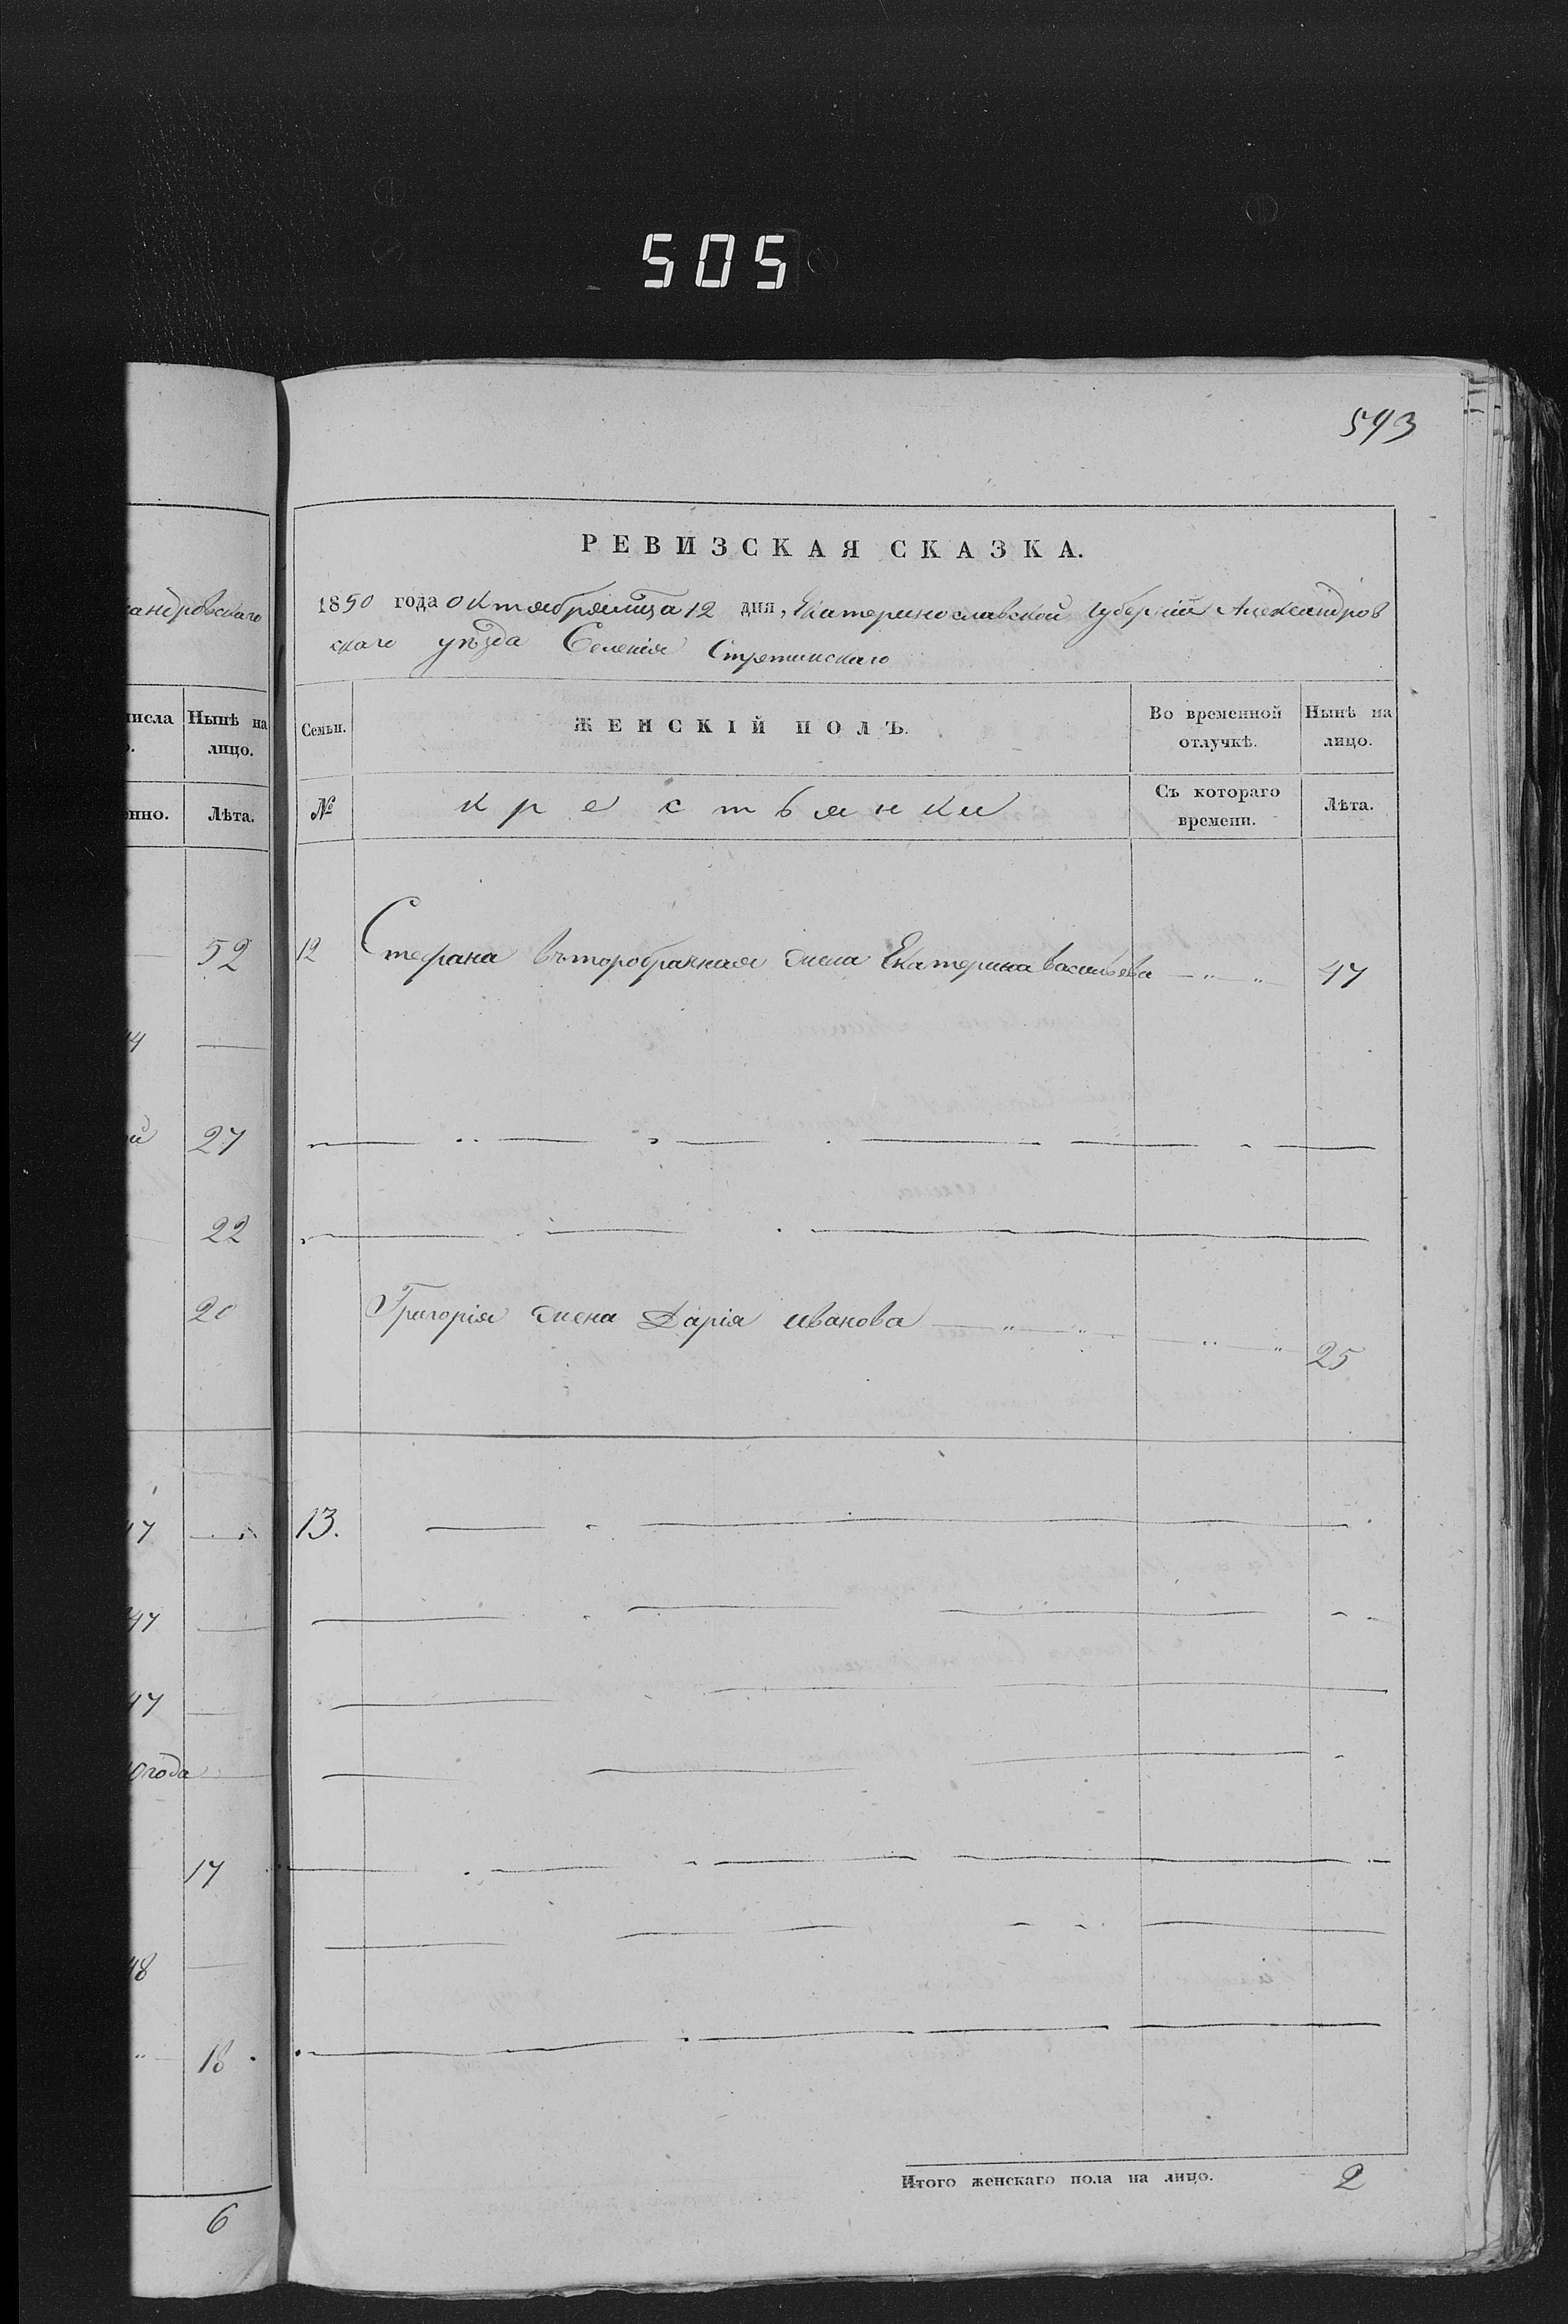 505
593
РЕВИЗСКАЯ СКАЗКА.
1850 года октября мѣсяца 12 дня, Екатеринославской губерніи Александров
скаго уѣзда Селенія Стретинскаго
андровскаго
числа Нынѣ на лицо.
нно. Лѣта.
Семьи. ЖЕНСКІЙ ПОЛЪ. Во временной отлучкѣ. Нынѣ на лицо.
№ крестьянки Съ котораго времени. Лѣта.
52
12 Стефана въторобрачная жена Екатерина васильева 47
27
22
20
Григорія жена Дарія иванова 25
13.
47
47
0 года
17
48
18
6
Итого женскаго пола на лицо. 2